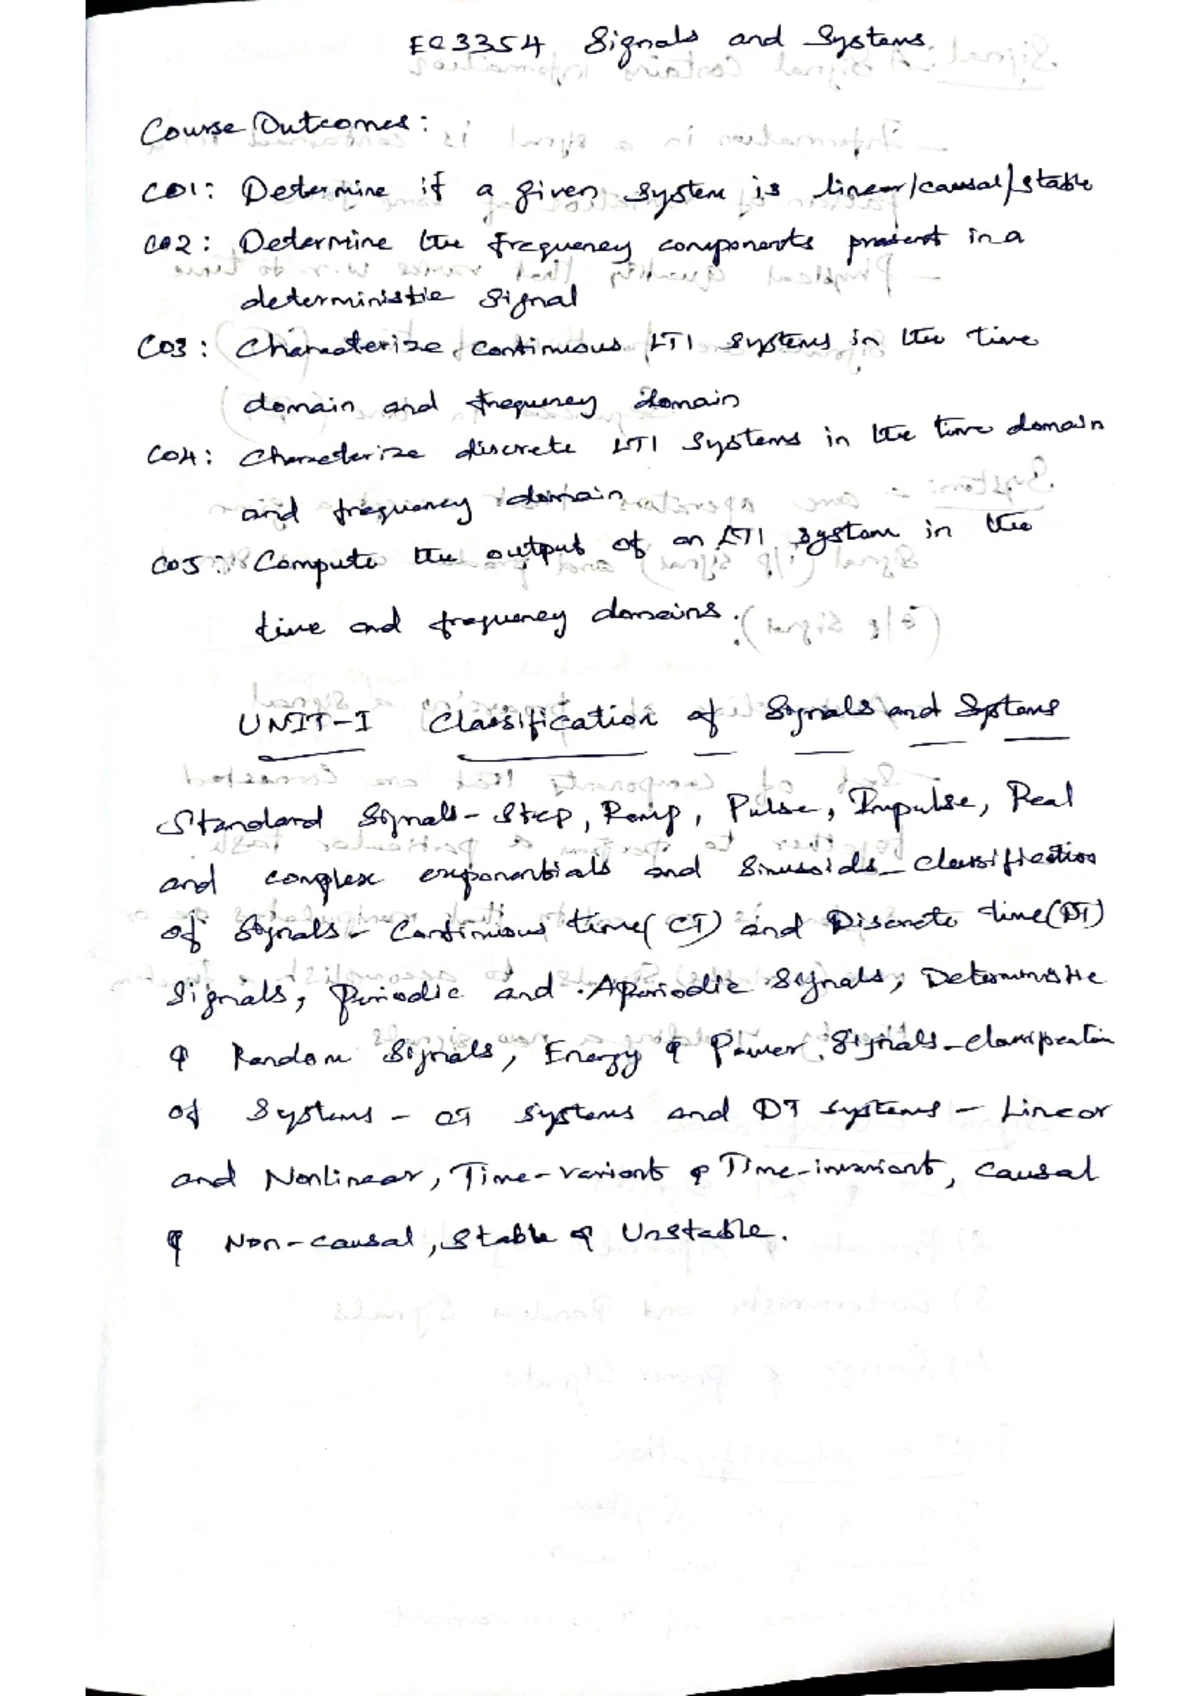 EC3354 Signals and Systems.
Course Outcomes:
CO1: Determine if a given system is linear/causal/stable
CO2: Determine the frequency components present in a
deterministic signal
CO3: Characterize continuous LTI systems in the time
domain and frequency domain
CO4: Characterize discrete LTI systems in the time domain
and frequency domain
CO5: Compute the output of an LTI system in the
time and frequency domains.
UNIT-I Classification of Signals and Systems
Standard Signals - Step, Ramp, Pulse, Impulse, Real
and complex exponentials and Sinusoids_ Classification
of Signals - Continuous time (CT) and Discrete time (DT)
Signals, Periodic and Aperiodic Signals, Deterministic
& Random Signals, Energy & Power Signals - Classification
of Systems - CT systems and DT systems - Linear
and Nonlinear, Time-variant & Time-invariant, Causal
& Non-causal, Stable & Unstable.